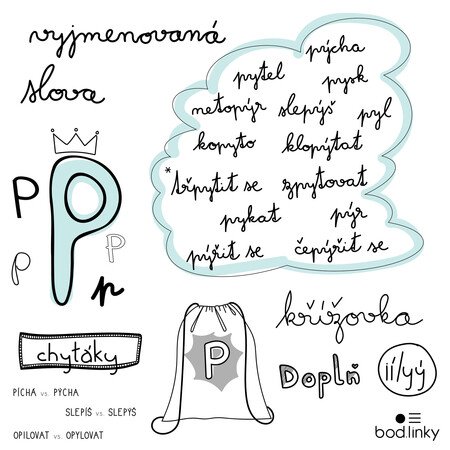 vyjmenovaná
slova
pýcha
pytel
pysk
netopýr slepýš pyl
kopyto klopýtat
*třpytit se zpytovat
pykat pýr
pýřit se čepýřit se
P P P
p p
křížovka
chytáky
P
Doplň ií/yý
PÍCHA vs. PÝCHA
SLEPÍŠ vs. SLEPÝŠ
OPILOVAT vs. OPYLOVAT
bod.linky